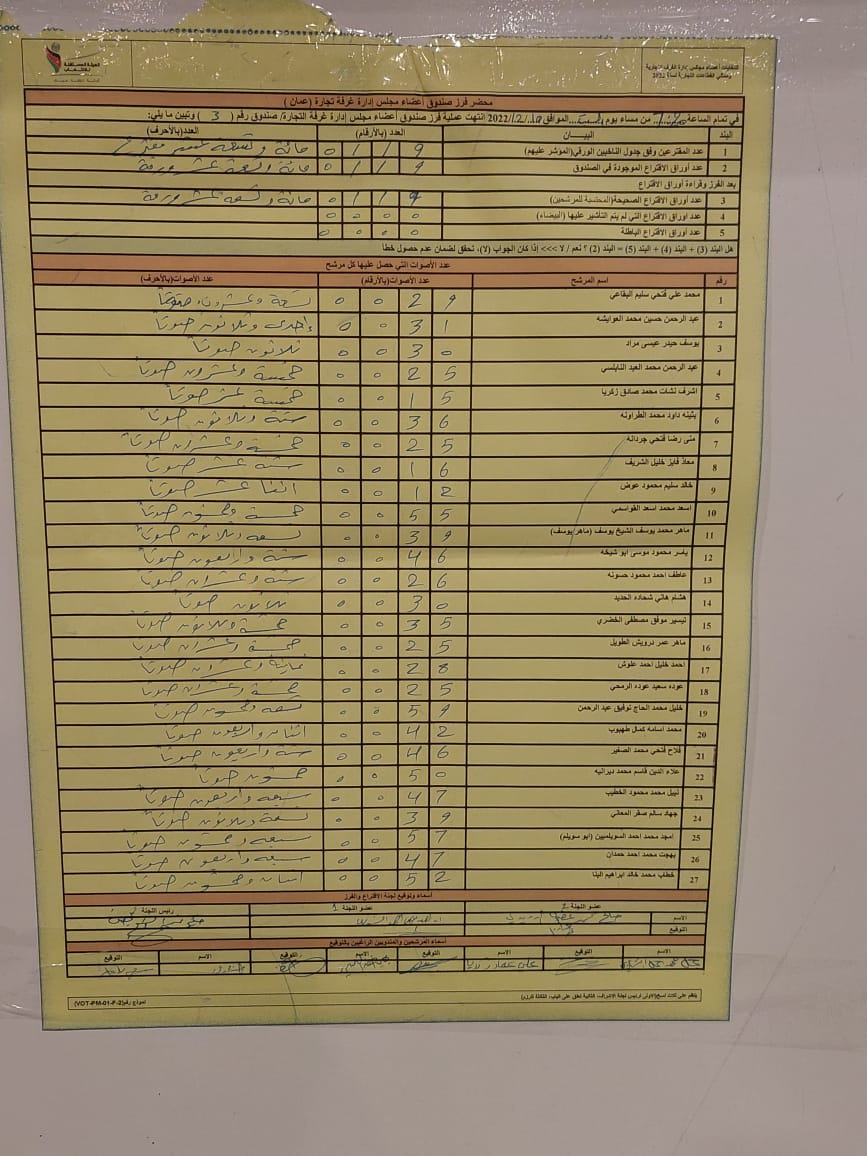 الهيئة المستقلة للانتخاب
انتخابات أعضاء مجلس إدارة الغرف التجارية
وممثلي القطاعات التجارية لسنة 2022
محضر فرز صندوق أعضاء مجلس إدارة غرفة تجارة (عمان)
في تمام الساعة من مساء يوم الموافق 2022/12/ انتهت عملية فرز صندوق أعضاء مجلس إدارة غرفة التجارة/ صندوق رقم ( 3 ) وتبين ما يلي:
البند البيـــــان العدد (بالأرقام) العدد(بالأحرف)
1 عدد المقترعين وفق جدول الناخبين الورقي(المؤشر عليهم) 9 1 1 0 مائة وتسعة عشر مقترع
2 عدد أوراق الاقتراع الموجودة في الصندوق 9 1 1 0 مائة وتسعة عشر ورقة
بعد الفرز وقراءة أوراق الاقتراع
3 عدد أوراق الاقتراع الصحيحة(المحتسبة للمرشحين) 9 1 1 0 مائة وتسعة عشر ورقة
4 عدد أوراق الاقتراع التي لم يتم التأشير عليها (البيضاء) 0 0 0 0
5 عدد أوراق الاقتراع الباطلة 0 0 0 0
هل البند (3) + البند (4) + البند (5) = البند (2) ؟ نعم / لا >>> إذا كان الجواب (لا)، تحقق لضمان عدم حصول خطأ
عدد الأصوات التي حصل عليها كل مرشح
رقم اسم المرشح عدد الأصوات(بالأرقام) عدد الأصوات(بالأحرف)
1 محمد علي فتحي سليم البقاعي 9 2 0 0 تسعة وعشرون صوتاً
2 عبد الرحمن حسين محمد العوايشه 1 3 0 0 إحدى وثلاثون صوتاً
3 يوسف حيدر عيسى مراد 0 3 0 0 ثلاثون صوتاً
4 عبد الرحمن محمد العبد النابلسي 5 2 0 0 خمسة وعشرون صوتاً
5 اشرف نشات محمد صادق زكريا 5 1 0 0 خمسة عشر صوتاً
6 بثينه داود محمد الطراونه 6 3 0 0 ستة وثلاثون صوتاً
7 منى رضا فتحي جردانه 5 2 0 0 خمسة وعشرون صوتاً
8 معاذ فايز خليل الشريف 6 1 0 0 ستة عشر صوتاً
9 خالد سليم محمود عوض 2 1 0 0 اثنا عشر صوتاً
10 اسعد محمد اسعد القواسمي 5 5 0 0 خمسة وخمسون صوتاً
11 ماهر محمد يوسف الشيخ يوسف (ماهر/يوسف) 9 3 0 0 تسعة وثلاثون صوتاً
12 ياسر محمود موسى ابو شيخه 6 4 0 0 ستة وأربعون صوتاً
13 عاطف احمد محمود حسونه 6 2 0 0 ستة وعشرون صوتاً
14 هشام هاني شحاده الحديد 0 3 0 0 ثلاثون صوتاً
15 تيسير موفق مصطفى الخضري 5 3 0 0 خمسة وثلاثون صوتاً
16 ماهر عمر درويش الطويل 5 2 0 0 خمسة وعشرون صوتاً
17 احمد خليل احمد علوش 8 2 0 0 ثمانية وعشرون صوتاً
18 عوده سعيد عوده الرمحي 5 2 0 0 خمسة وعشرون صوتاً
19 خليل محمد الحاج توفيق عبد الرحمن 9 5 0 0 تسعة وخمسون صوتاً
20 محمد اسامه كمال طهبوب 2 4 0 0 اثنان وأربعون صوتاً
21 فلاح فتحي محمد الصغير 6 4 0 0 ستة وأربعون صوتاً
22 علاء الدين قاسم محمد ديرانيه 0 5 0 0 خمسون صوتاً
23 نبيل محمد محمود الخطيب 7 4 0 0 سبعة وأربعون صوتاً
24 جهاد سالم صقر المعاني 9 3 0 0 تسعة وثلاثون صوتاً
25 امجد محمد احمد السويلميين (ابو سويلم) 7 5 0 0 سبعة وخمسون صوتاً
26 بهجت محمد احمد حمدان 7 4 0 0 سبعة وأربعون صوتاً
27 خطاب محمد خالد ابراهيم البنا 2 5 0 0 اثنان وخمسون صوتاً
أسماء وتوقيع لجنة الاقتراع والفرز
عضو اللجنة 2 عضو اللجنة 1 رئيس اللجنة
الاسم
التوقيع
أسماء المرشحين والمندوبين الراغبين بالتوقيع
الاسم التوقيع الاسم التوقيع الاسم التوقيع الاسم التوقيع
ينظم على ثلاث نسخ(الأولى لرئيس لجنة الاشراف، الثانية تعلق على الباب، الثالثة للرزم) نموذج رقم(VOT-PM-01-F-2)